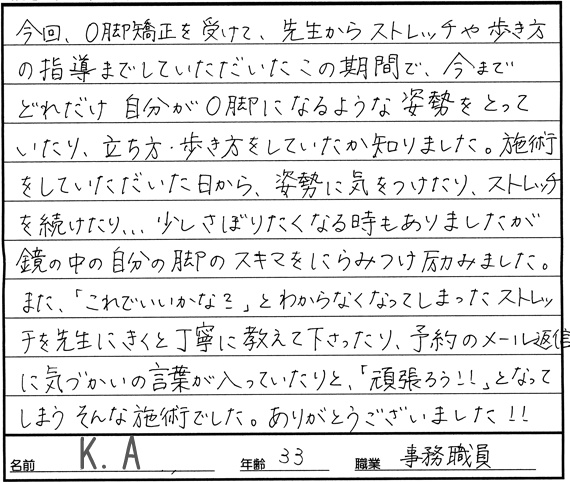 今回、O脚矯正を受けて、先生からストレッチや歩き方
の指導までしていただいたこの期間で、今まで
どれだけ自分がO脚になるような姿勢をとって
いたり、立ち方・歩き方をしていたか知りました。施術
をしていただいた日から、姿勢に気をつけたり、ストレッチ
を続けたり、、、少しさぼりたくなる時もありましたが
鏡の中の自分の脚のスキマをにらみつけ励みました。
また、「これでいいかな?」とわからなくなってしまったストレッ
チを先生にきくと丁寧に教えて下さったり、予約のメール返信
に気づかいの言葉が入っていたりと、「頑張ろう!!」となって
しまうそんな施術でした。ありがとうございました!!
名前 K.A 年齢 33 職業 事務職員